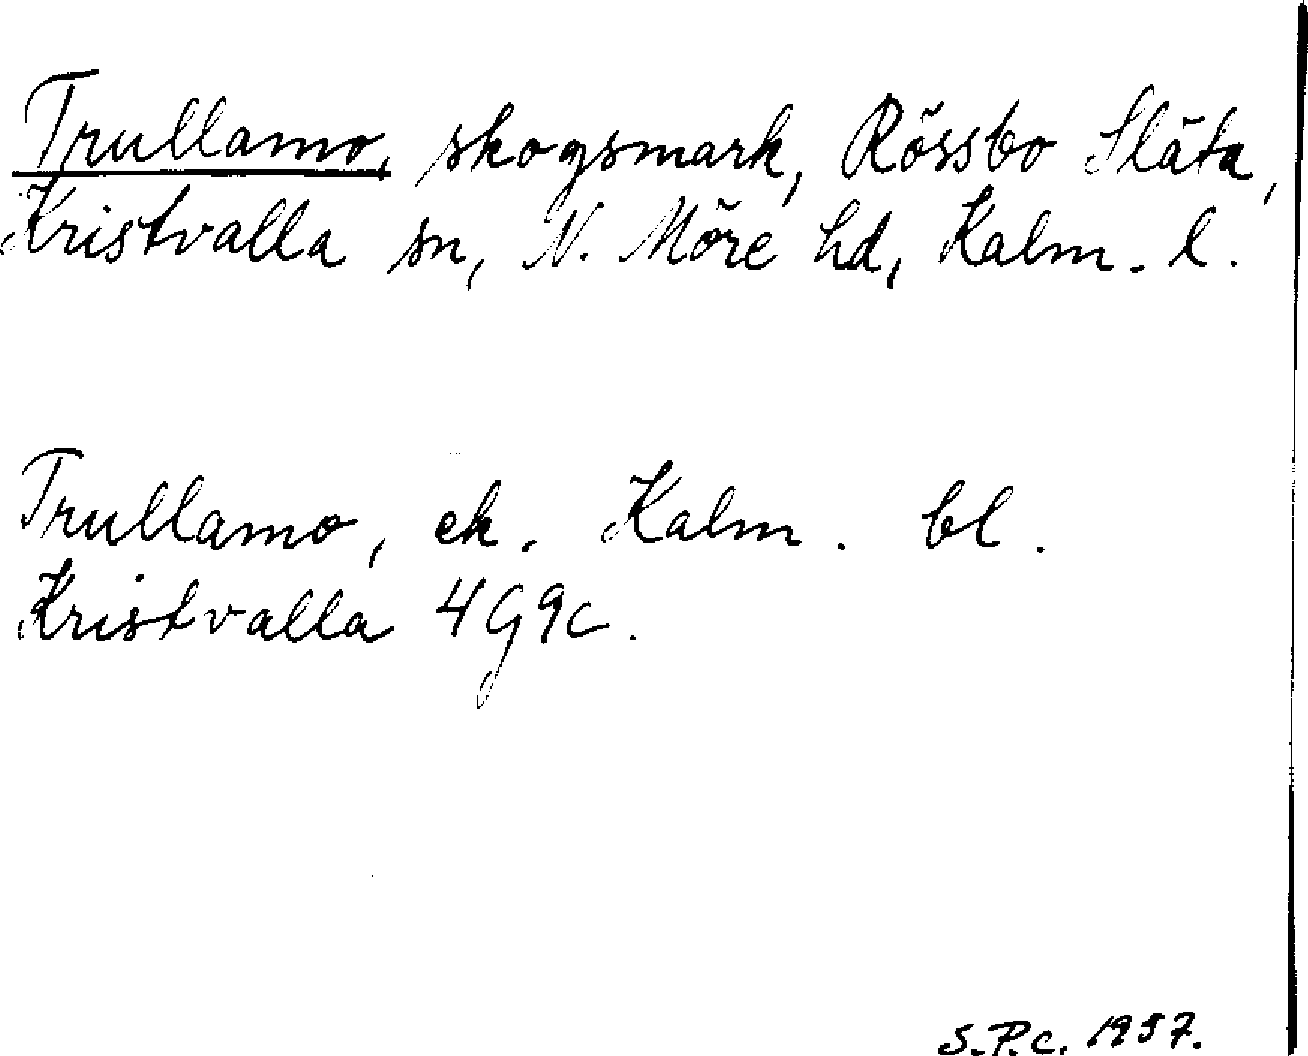 Trullamo, skogsmark, Rössbo Släta,
Kristvalla sn, N. Möre hd, Kalm. l.
Trullamo, ek. Kalm. bl.
Kristvalla 4G9c.
S.P.c. 1957.